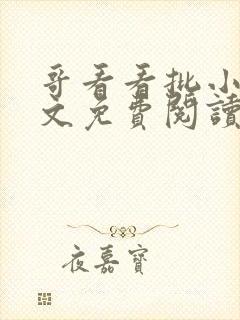 哥看看批小
文免費閱讀
夜嘉寶